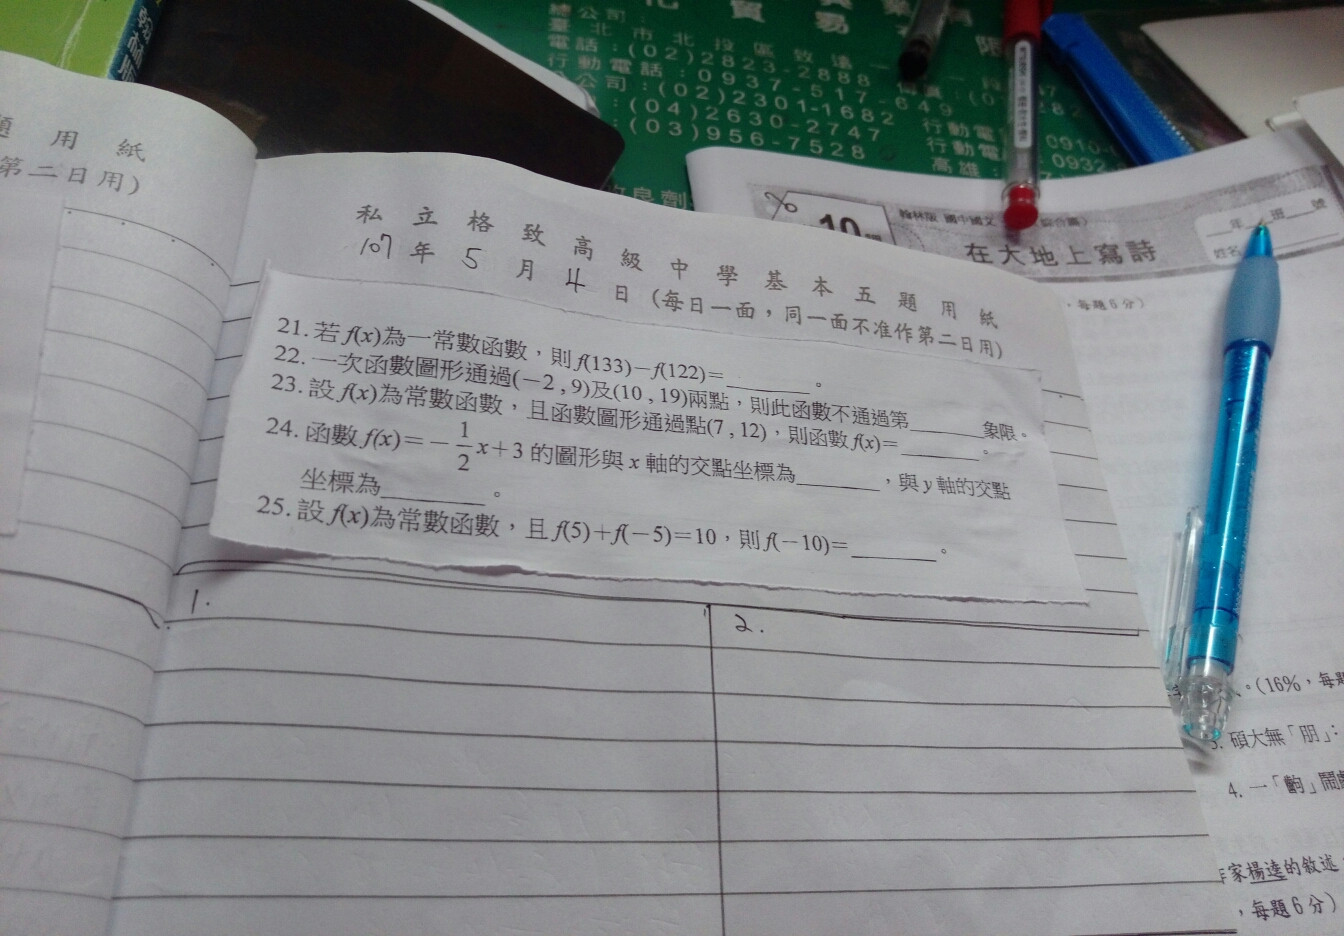 總公司:
臺北市北投區致遠一
電話:(02)2823-2888
行動電話:0937-517-649
公司:(02)2301-1682
:(04)2630-2747
:(03)956-7528
行動電
0910-
行動電
0932-
高雄:
題用紙
第二日用)
私立格致高級中學基本五題用紙
107年5月4日(每日一面,同一面不准作第二日用)
21.若f(x)為一常數函數,則f(133)-f(122)=________。
22.一次函數圖形通過(-2,9)及(10,19)兩點,則此函數不通過第________象限。
23.設f(x)為常數函數,且函數圖形通過點(7,12),則函數f(x)=________。
24.函數f(x)=-1/2x+3的圖形與x軸的交點坐標為________,與y軸的交點
坐標為________。
25.設f(x)為常數函數,且f(5)+f(-5)=10,則f(-10)=________。
1.
2.
10
翰林版 國中國文
在大地上寫詩
年 班 號
姓名
,每題6分)
。(16%,每題
3.碩大無「朋」:
4.一「齣」鬧劇
作家楊逵的敘述
,每題6分)